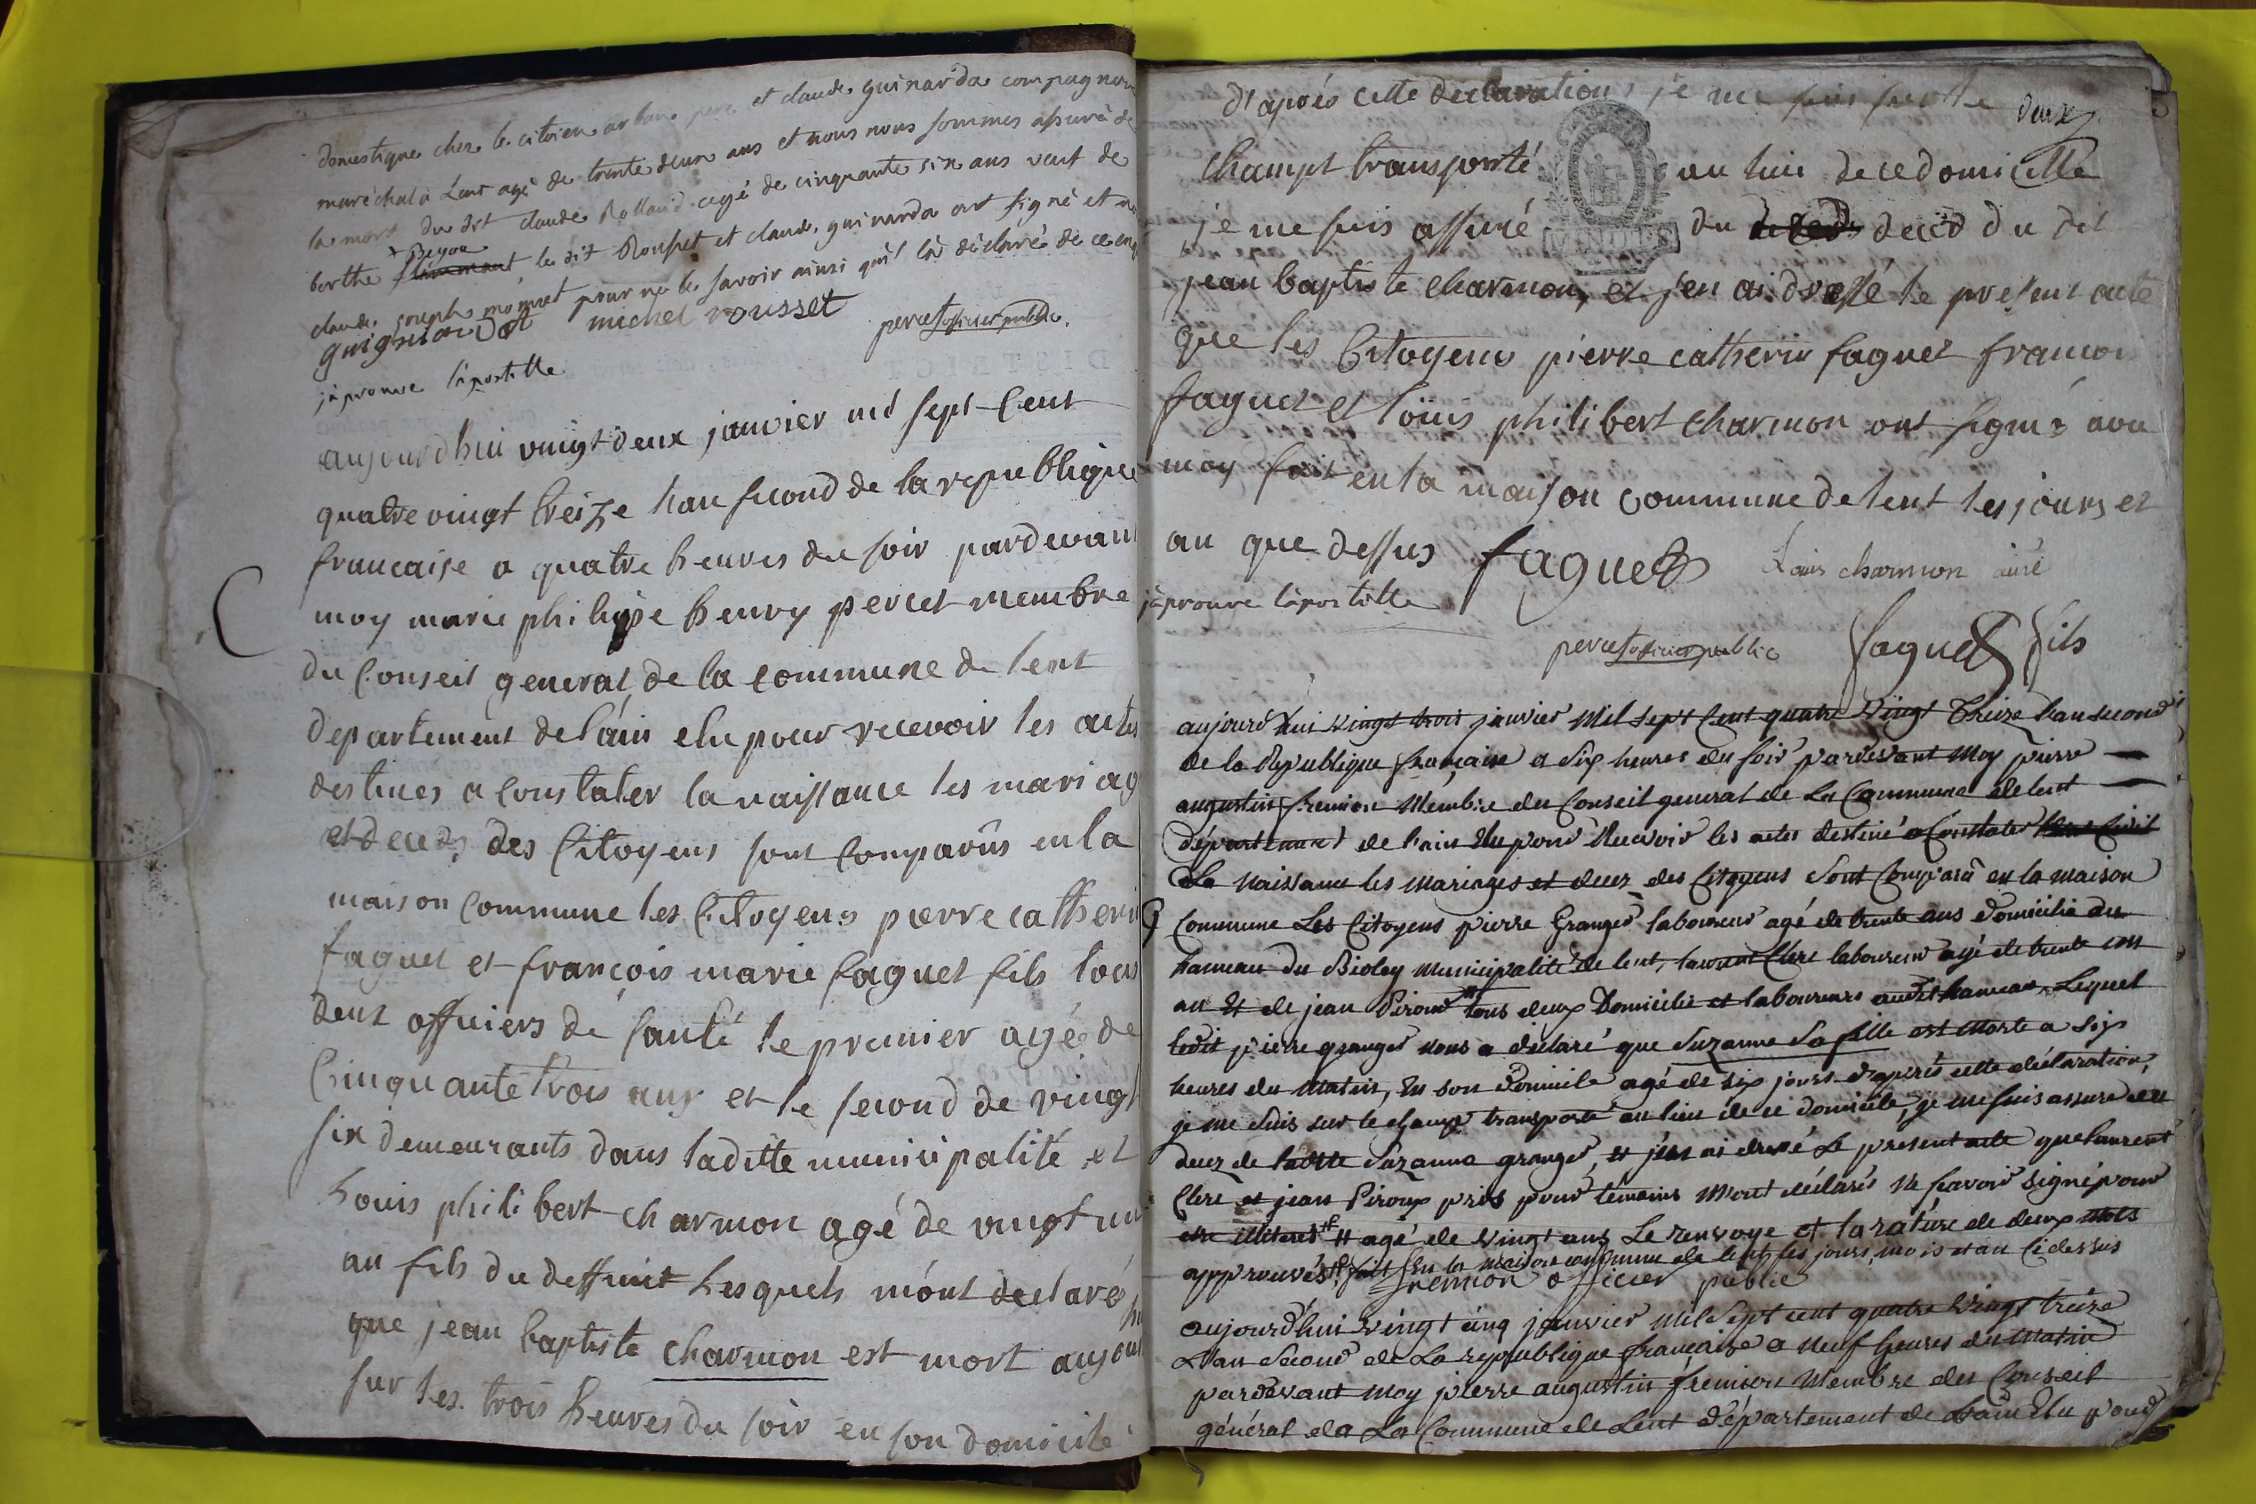 domestique chez le citoien arban pere et claude guinarda compagnon
maréchal à Lent agé de trente deux ans et nous nous sommes assuré de
la mort du dit claude Rolland agé de cinquante six ans veuf de
+ Bejoa
berthe le dit Rousset et claude guinarda ont signé et
claude joseph monnet pour ne le savoir ainsi qu'il l'a déclaré de ce
guignardat michel rousset percet officier public
j'aprouve l'apostille
aujourdhui vingt deux janvier mil sept cent
quatre vingt treize l'an second de la republique
francaise a quatre heures du soir pardevant
moy marie philippe henry percet membre
du Conseil general de la commune de lent
departement de l'ain elu pour recevoir les actes
destines a constater la naissance les mariag
et deced des Citoyens sont comparûs en la
maison commune les Citoyens pierre catherin
faguet et françois marie faguet fils tous
deux officiers de santé le premier agé de
Cinquante trois ans et le second de vingt
six demeurants dans laditte municipalité et
Louis philibert charmon agé de vingt un
an fils du deffunt Lesquels m'ont declaré
que jean baptiste charmon est mort aujour
sur les trois heures du soir en son domicile
d'aprés cette declaration je me suis sur le
deux
champt transporté au lieu de ce domicille
je me suis assuré du deced du dit
jean baptiste charmon, et j'en ai dressé le present acte
que les Citoyens pierre catherin faguet francois
faguet et loüis philibert charmon ont signé avec
moy fait en la maison commune de lent les jours et
an que dessus faguet Louis charmon ainé
j'aprouve l'apostille
percet officier public faguet fils
aujourd'hui vingt trois janvier mil sept cent quatre vingt treize l'an second
de la Republique française a six heures du soir pardevant moy pierre
augustin fremion Membre du Conseil general de La Commune de lent
département de l'ain Elu pour Recevoir les actes destiné a Constater
La Naissance les Mariages et decez des Citoyens sont Comparû en la maison
Commune Les Citoyens pierre Granger laboureur agé de trente ans domicilié au
hameau du Bioley Municipalité de lent, laurent Clerc laboureur agé de trente
an et de jean Piroux # tous deux Domicilié et laboureurs audit hameau, Lequel
ledit pierre granger nous a déclaré que Suzanne Sa fille est Morte a six
heures du matin, En son domicile, agé de six jours d'après cette déclaration,
je me suis sur le champ transporté au lieu de ce domicile, je me suis assuré du
decez de Suzanne granger, et j'en ai dressé Le present acte que laurent
Clerc et jean Piroux pris pour témoins M'ont déclarés ne savoir signé pour
# agé de vingt ans Le renvoye et la rature de deux mots
approuvés # fait En la maison commune de lent les jours, mois et an ci dessus
fremion officier public
aujourd'hui vingt cinq janvier mil sept cent quatre vingt treize
L'an Second de La republique française a neuf heures du matin
pardevant moy pierre augustin fremion Membre du Conseil
général de La Commune de Lent département de L'ain Elu pour